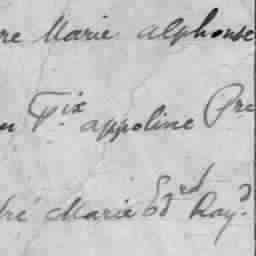 re Marie alphonse
F.ix appoline Pre
Marie Ed.rd Ray.d